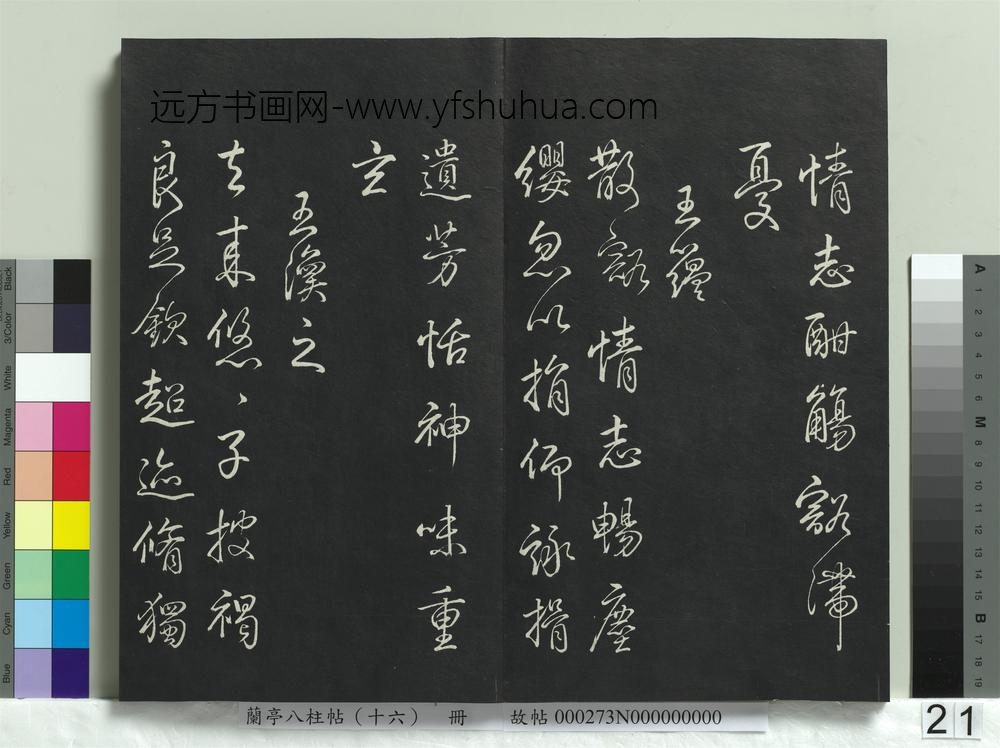 远方书画网-www.yfshuhua.com
情志酣觴豁滯
憂
王蘊
散豁情志暢塵
纓忽以捐仰詠揖
遺芳恬神味重
玄
王渙之
去來悠、子披褐
良足欽超迹脩獨
蘭亭八柱帖（十六） 冊 故帖 000273N000000000
21
Black
3/Color
White
Magenta
Red
Yellow
Green
Cyan
Blue
A 1 2 3 4 5 6 M 8 9 10 11 12 13 14 15 B 17 18 19